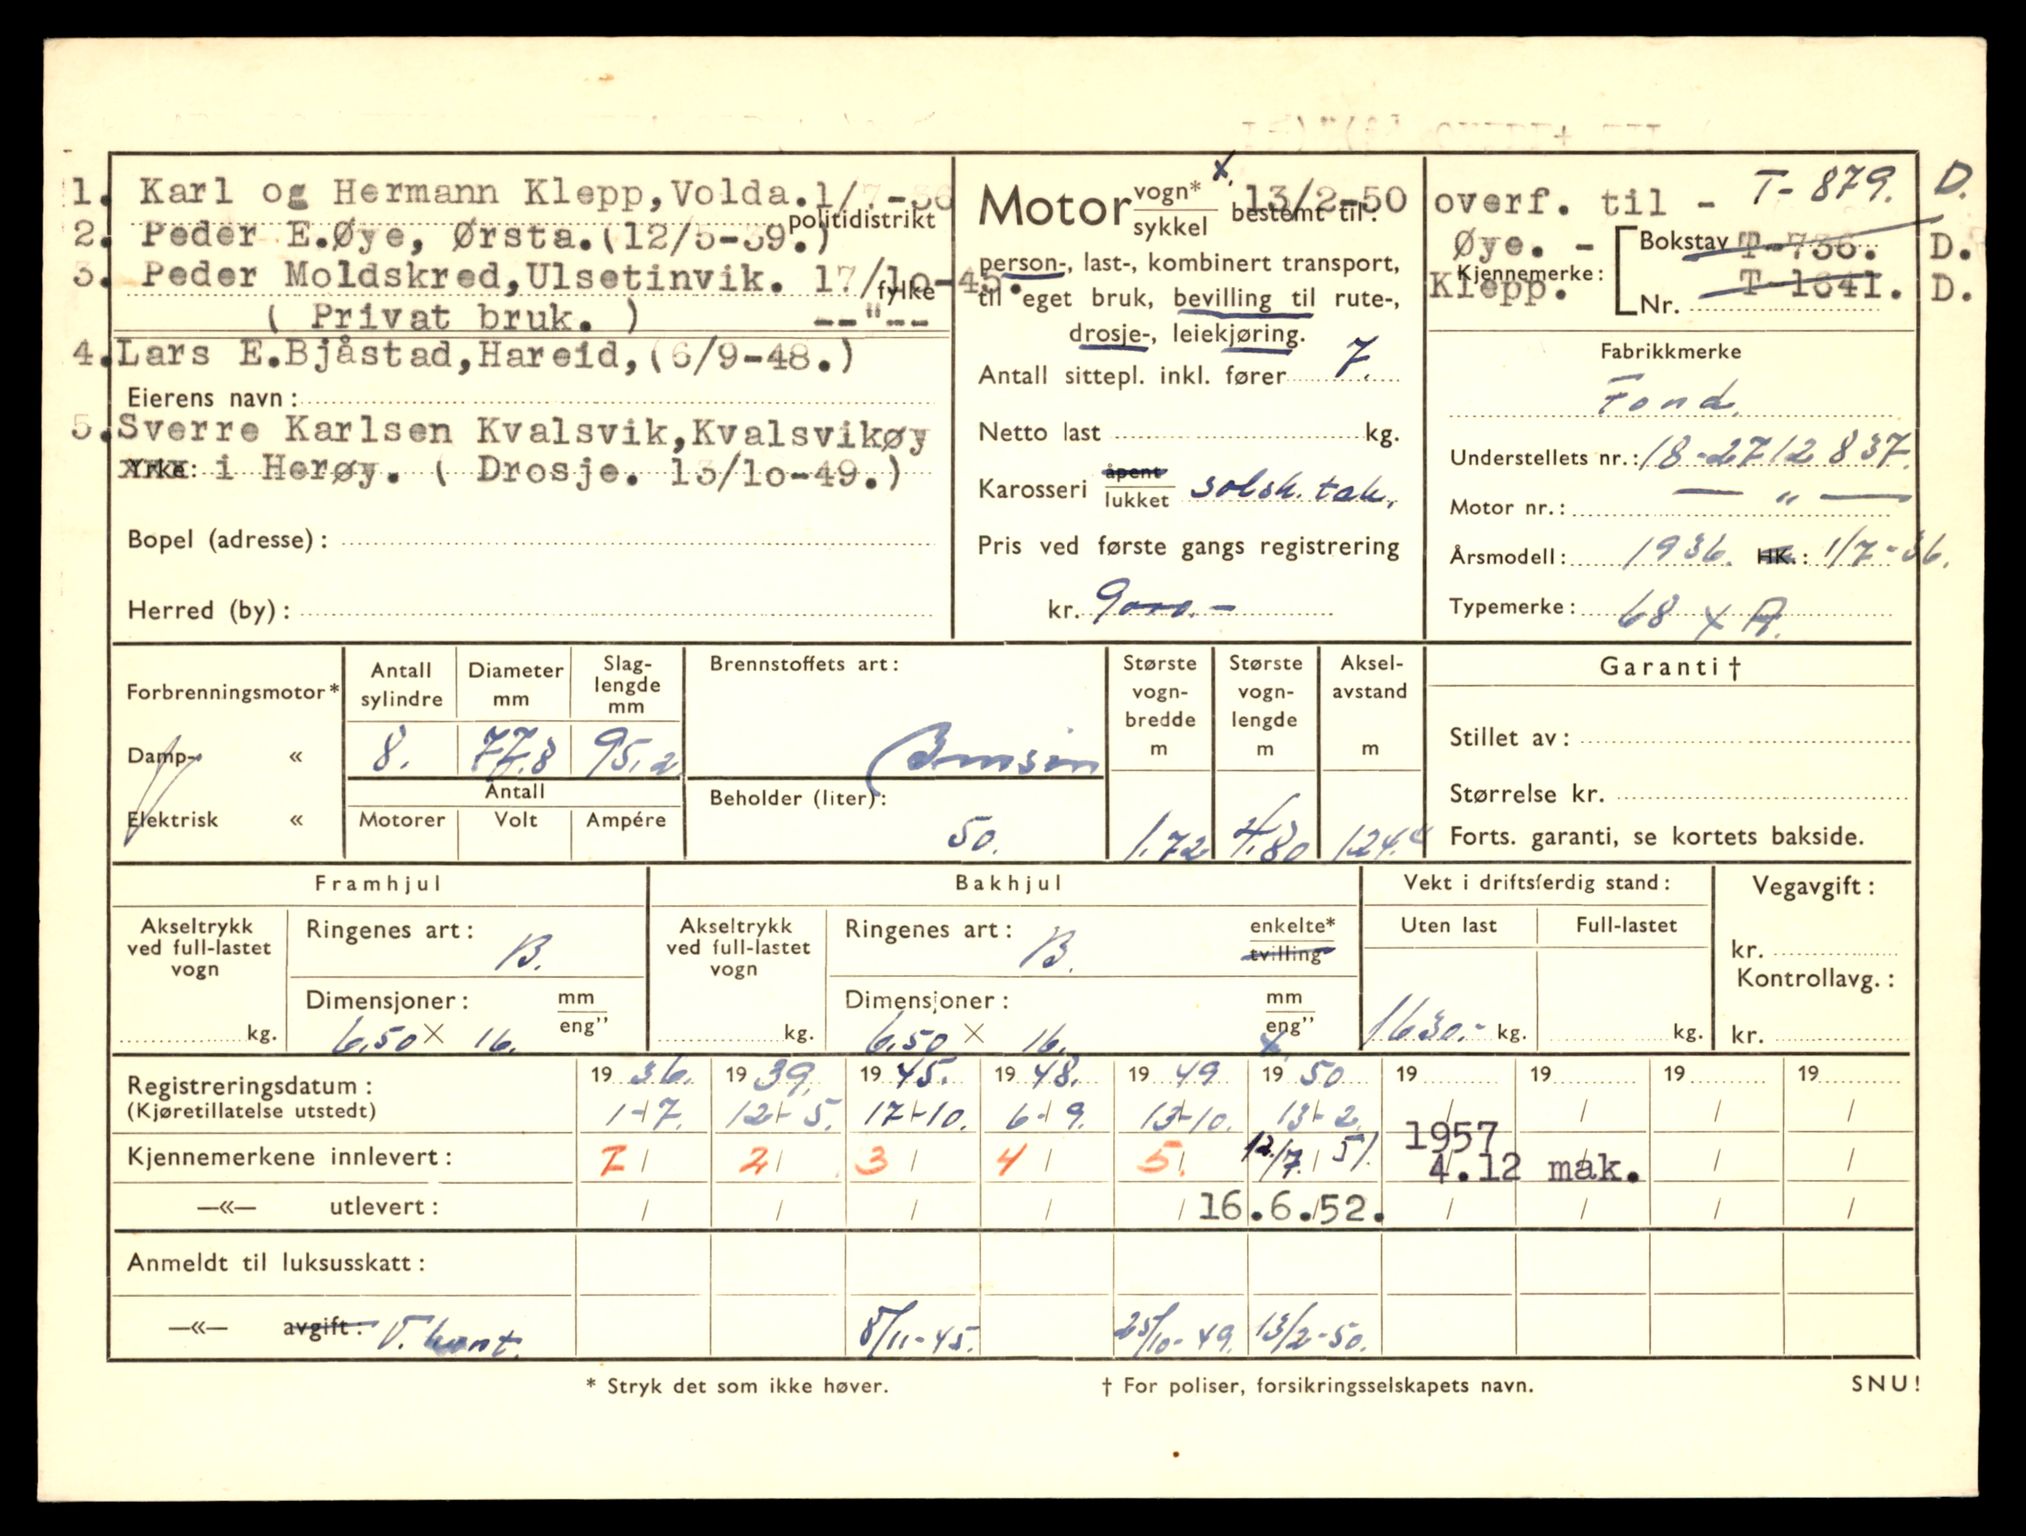 1. Karl og Hermann Klepp, Volda. 1/7-36
politidistrikt
2. Peder E.Øye, Ørsta.(12/5-39.)
3. Peder Moldskred,Ulsetinvik. 17/1o-45.
fylke
( Privat bruk. ) --"--
4. Lars E.Bjåstad,Hareid,(6/9-48.)
Eierens navn:
5. Sverre Karlsen Kvalsvik,Kvalsvikøy
Yrke: i Herøy. ( Drosje. 13/1o-49.)
Bopel (adresse):
Herred (by):
Motor vogn* sykkel bestemt til: x. 13/2-50
person-, last-, kombinert transport,
til eget bruk, bevilling til rute-,
drosje-, leiekjøring.
Antall sittepl. inkl. fører 7.
Netto last kg.
Karosseri åpent lukket solsk. tak.
Pris ved første gangs registrering
kr. 9000.-
overf. til - T-879. D.
Øye. - Bokstav T-736. D.
Kjennemerke:
Klepp. T-1641. D.
Nr.
Fabrikkmerke
Ford.
Understellets nr.: 18-2712837.
Motor nr.: — " —
Årsmodell: 1936. HK.: 1/7-36.
Typemerke: 68 x A.
Forbrenningsmotor*
Damp- «
Elektrisk «
Antall sylindre
8.
Diameter mm
77.8
Slag-lengde mm
95.2
Antall
Motorer Volt Ampére
Brennstoffets art:
Bensin
Beholder (liter):
50.
Største vogn-bredde m
1.72
Største vogn-lengde m
4.80
Aksel-avstand m
Garanti †
Stillet av:
Størrelse kr.
Forts. garanti, se kortets bakside.
Framhjul
Akseltrykk ved full-lastet vogn
kg.
Ringenes art: B.
Dimensjoner: mm eng"
6.50 x 16.
Bakhjul
Akseltrykk ved full-lastet vogn
kg.
Ringenes art: B. enkelte* tvilling
Dimensjoner: mm eng"
6.50 x 16. x
Vekt i driftsferdig stand:
Uten last Full-lastet
1630.- kg. kg.
Vegavgift:
kr.
Kontrollavg.:
kr.
Registreringsdatum: 19 36. 19 39. 19 45. 19 48. 19 49 19 50 19 19 19 19
(Kjøretillatelse utstedt) 1-7. 12-5. 17-10. 6-9. 13-10. 13-2. / / / /
1957
Kjennemerkene innlevert: 1 / 2 / 3 / 4 / 5. / 12/7. 51. 4.12 mak. / /
—«— utlevert: / / / / / 16.6.52. / / / /
Anmeldt til luksusskatt:
—«— avgift: T. kont. 8/11-45. 25/10-49. 13/2-50.
* Stryk det som ikke høver.
† For poliser, forsikringsselskapets navn.
SNU!